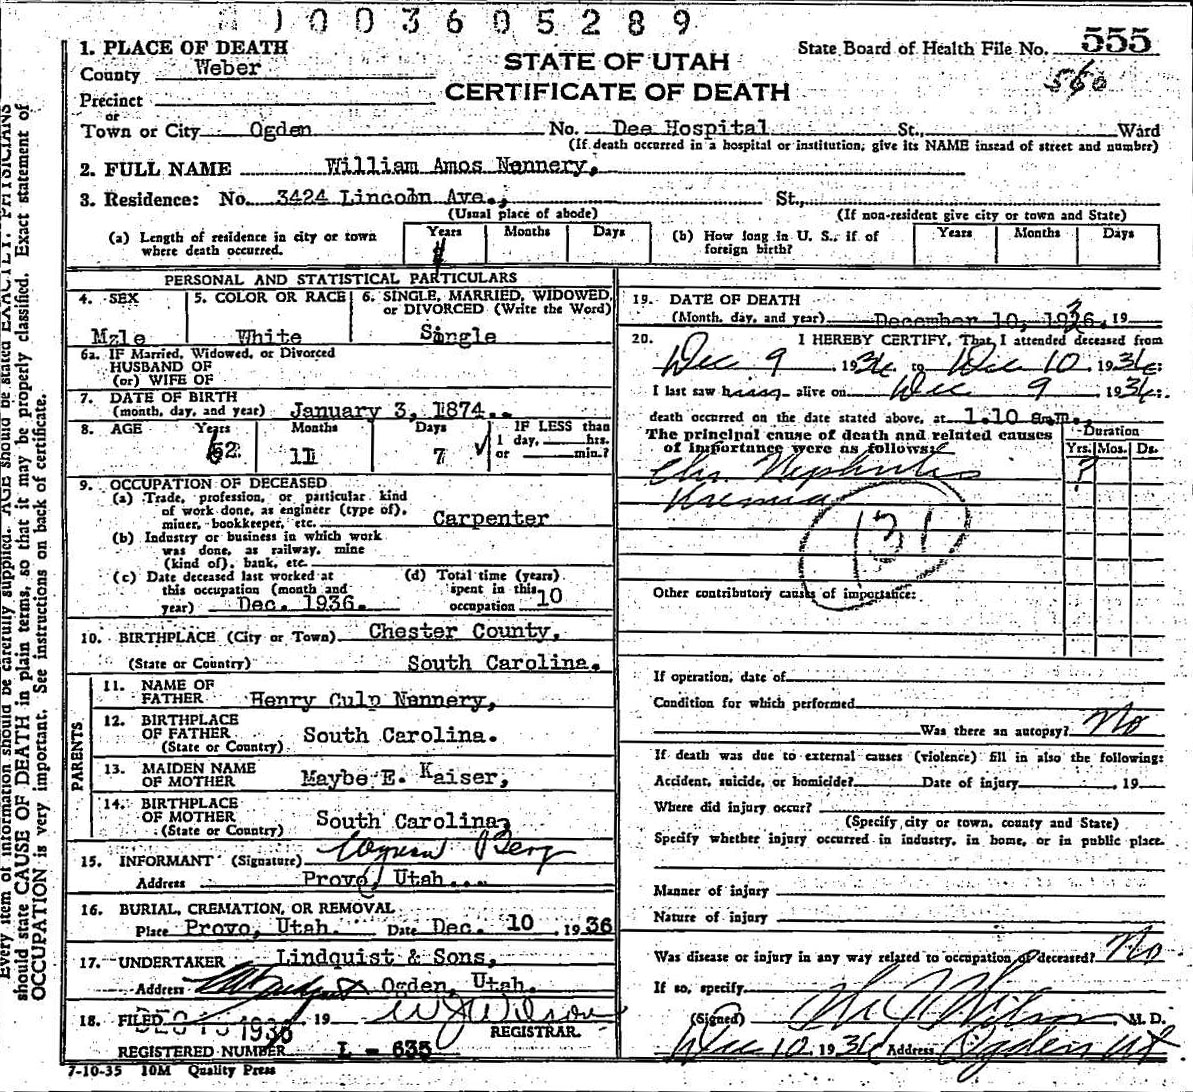 1003605289
1. PLACE OF DEATH
County Weber
STATE OF UTAH
State Board of Health File No. 555
560
Precinct
CERTIFICATE OF DEATH
or
Town or City Ogden No. Dee Hospital St., Ward
(If death occurred in a hospital or institution, give its NAME instead of street and number)
2. FULL NAME William Amos Nennery,
3. Residence: No. 3424 Lincoln Ave., St.,
(Usual place of abode) (If non-resident give city or town and State)
(a) Length of residence in city or town where death occurred. Years Months Days
(b) How long in U. S., if of foreign birth? Years Months Days
PERSONAL AND STATISTICAL PARTICULARS
4. SEX Mzle
5. COLOR OR RACE White
6. SINGLE, MARRIED, WIDOWED, or DIVORCED (Write the Word) Single
6a. IF Married, Widowed, or Divorced
HUSBAND OF
(or) WIFE OF
7. DATE OF BIRTH
(month, day, and year) January 3, 1874.
8. AGE Years 62 Months 11 Days 7 IF LESS than 1 day, hrs. or min.?
9. OCCUPATION OF DECEASED
(a) Trade, profession, or particular kind
of work done, as engineer (type of),
miner, bookkeeper, etc. Carpenter
(b) Industry or business in which work
was done, as railway, mine
(kind of), bank, etc.
(c) Date deceased last worked at
this occupation (month and
year) Dec. 1936.
(d) Total time (years)
spent in this
occupation 10
10. BIRTHPLACE (City or Town) Chester County,
(State or Country) South Carolina.
PARENTS
11. NAME OF
FATHER Henry Culp Nennery,
12. BIRTHPLACE
OF FATHER South Carolina.
(State or Country)
13. MAIDEN NAME
OF MOTHER Maybe E. Kaiser,
14. BIRTHPLACE
OF MOTHER South Carolina
(State or Country)
15. INFORMANT (Signature) Berg
Address Provo, Utah.
16. BURIAL, CREMATION, OR REMOVAL
Place Provo, Utah. Date Dec. 10, 1936
17. UNDERTAKER Lindquist & Sons,
Address Ogden, Utah.
18. FILED 1936 19 W J Wilson
REGISTRAR.
REGISTERED NUMBER L - 635
7-10-35 10M Quality Press
19. DATE OF DEATH
(Month, day, and year) December 10, 1936, 19
20. I HEREBY CERTIFY, That I attended deceased from
Dec 9 1936 to Dec 10 1936;
I last saw him alive on Dec 9 1936;
death occurred on the date stated above, at 1.10 a.m.
The principal cause of death and related causes
of importance were as follows:
Duration
Yrs. Mos. Ds.
Chr. Nephritis ?
(131)
Other contributory causes of importance:
If operation, date of
Condition for which performed
Was there an autopsy? No
If death was due to external causes (violence) fill in also the following:
Accident, suicide, or homicide? Date of injury , 19
Where did injury occur?
(Specify city or town, county and State)
Specify whether injury occurred in industry, in home, or in public place.
Manner of injury
Nature of injury
Was disease or injury in any way related to occupation of deceased? No
If so, specify
(Signed) Wilson, M. D.
Dec 10 1936 Address Ogden Ut
Every item of information should be carefully supplied. AGE should be stated EXACTLY. PHYSICIANS
should state CAUSE OF DEATH in plain terms, so that it may be properly classified. Exact statement of
OCCUPATION is very important. See instructions on back of certificate.